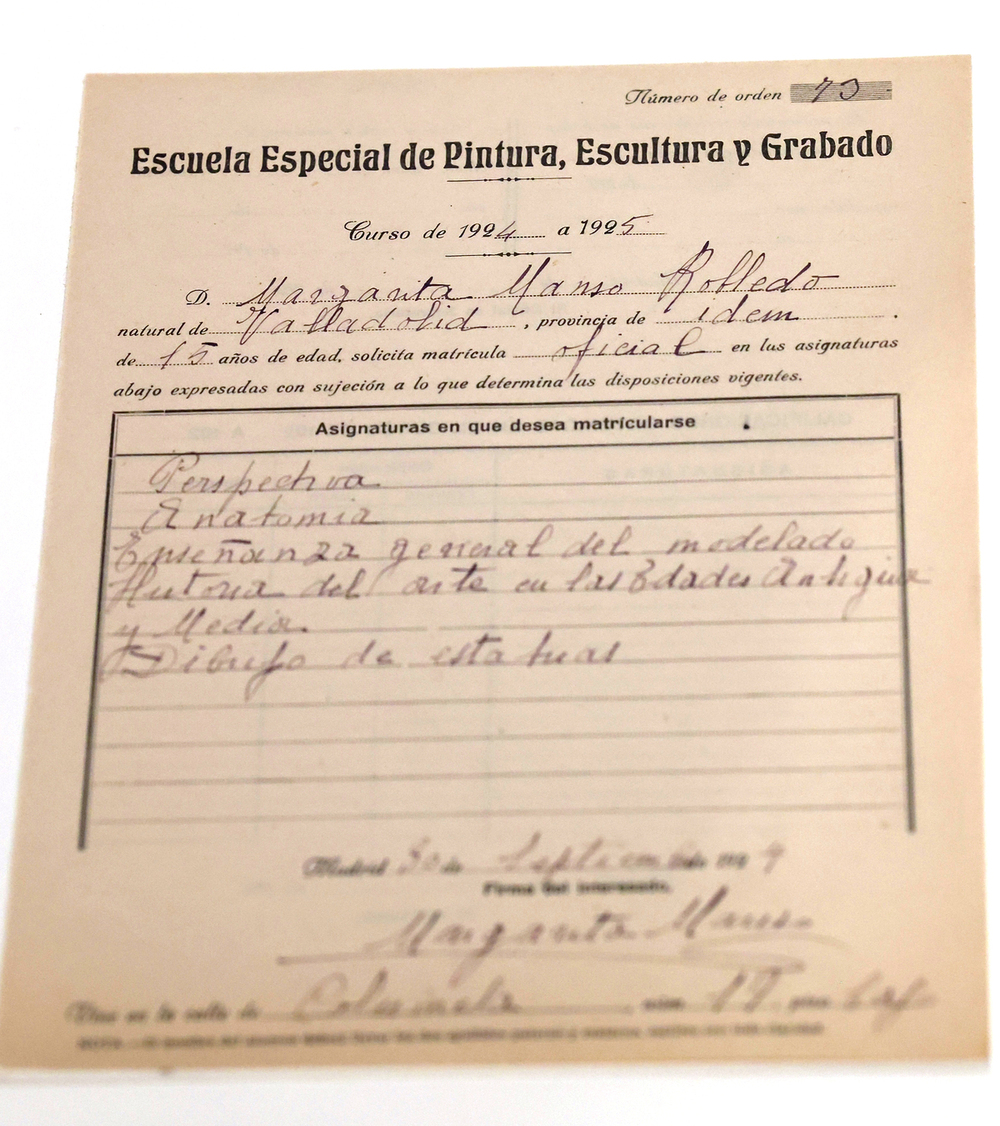 Número de orden 73
Escuela Especial de Pintura, Escultura y Grabado
Curso de 1924 a 1925
D. Margarita Manso Robledo
natural de Valladolid, provincia de idem.
de 15 años de edad, solicita matrícula oficial en las asignaturas
abajo expresadas con sujeción a lo que determina las disposiciones vigentes.
Asignaturas en que desea matrícularse
Perspectiva
Anatomia
Enseñanza general del modelado
Historia del arte en las Edades Antigua
y Media.
Dibujo de estatuas
Madrid 30 de Septiembre de 1924
Firma del interesado,
Margarita Manso
Vive en la calle de Columela, núm. 17 piso